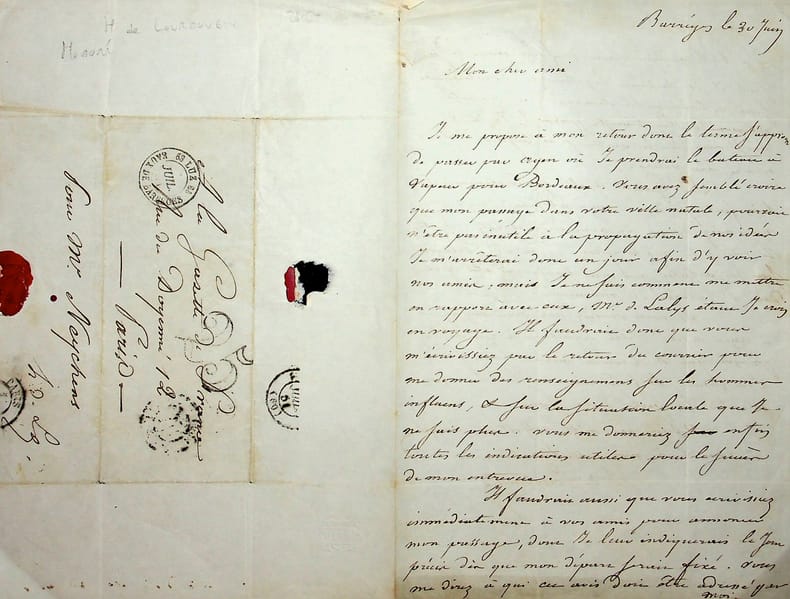 H de Lourdoueix
Honoré
À la Gazette de France
rue du Doyenné 12
Paris
Pour Mr.
LUZ
EAUX DE
JUIL.
PARIS
Barréges le 30 Juin
Mon cher ami
Je me propose à mon retour dont le terme s'approche
de passer par agen où Je prendrai le bateau à
vapeur pour Bordeaux. Vous avez semblé croire
que mon passage dans votre ville natale, pourrait
n'être pas inutile à la propagation de nos idées
Je m'arrêterai donc un jour afin d'y voir
nos amis, mais Je ne sais comment me mettre
en rapport avec eux, Mr. d. étant Je crois
en voyage. Il faudrait donc que vous
m'écrivissiez par le retour du courrier pour
me donner des renseignemens sur les hommes
influens, & sur la situation locale que Je
ne sais plus. vous me donneriez enfin
toutes les indications utiles pour le succès
de mon entrevue.
Il faudrait aussi que vous écrivissiez
immédiatement à vos amis pour annoncer
mon passage, dont Je leur indiquerais le Jour
précis dès que mon départ serait fixé. Vous
me direz à qui cet avis doit être adressé par
moi.